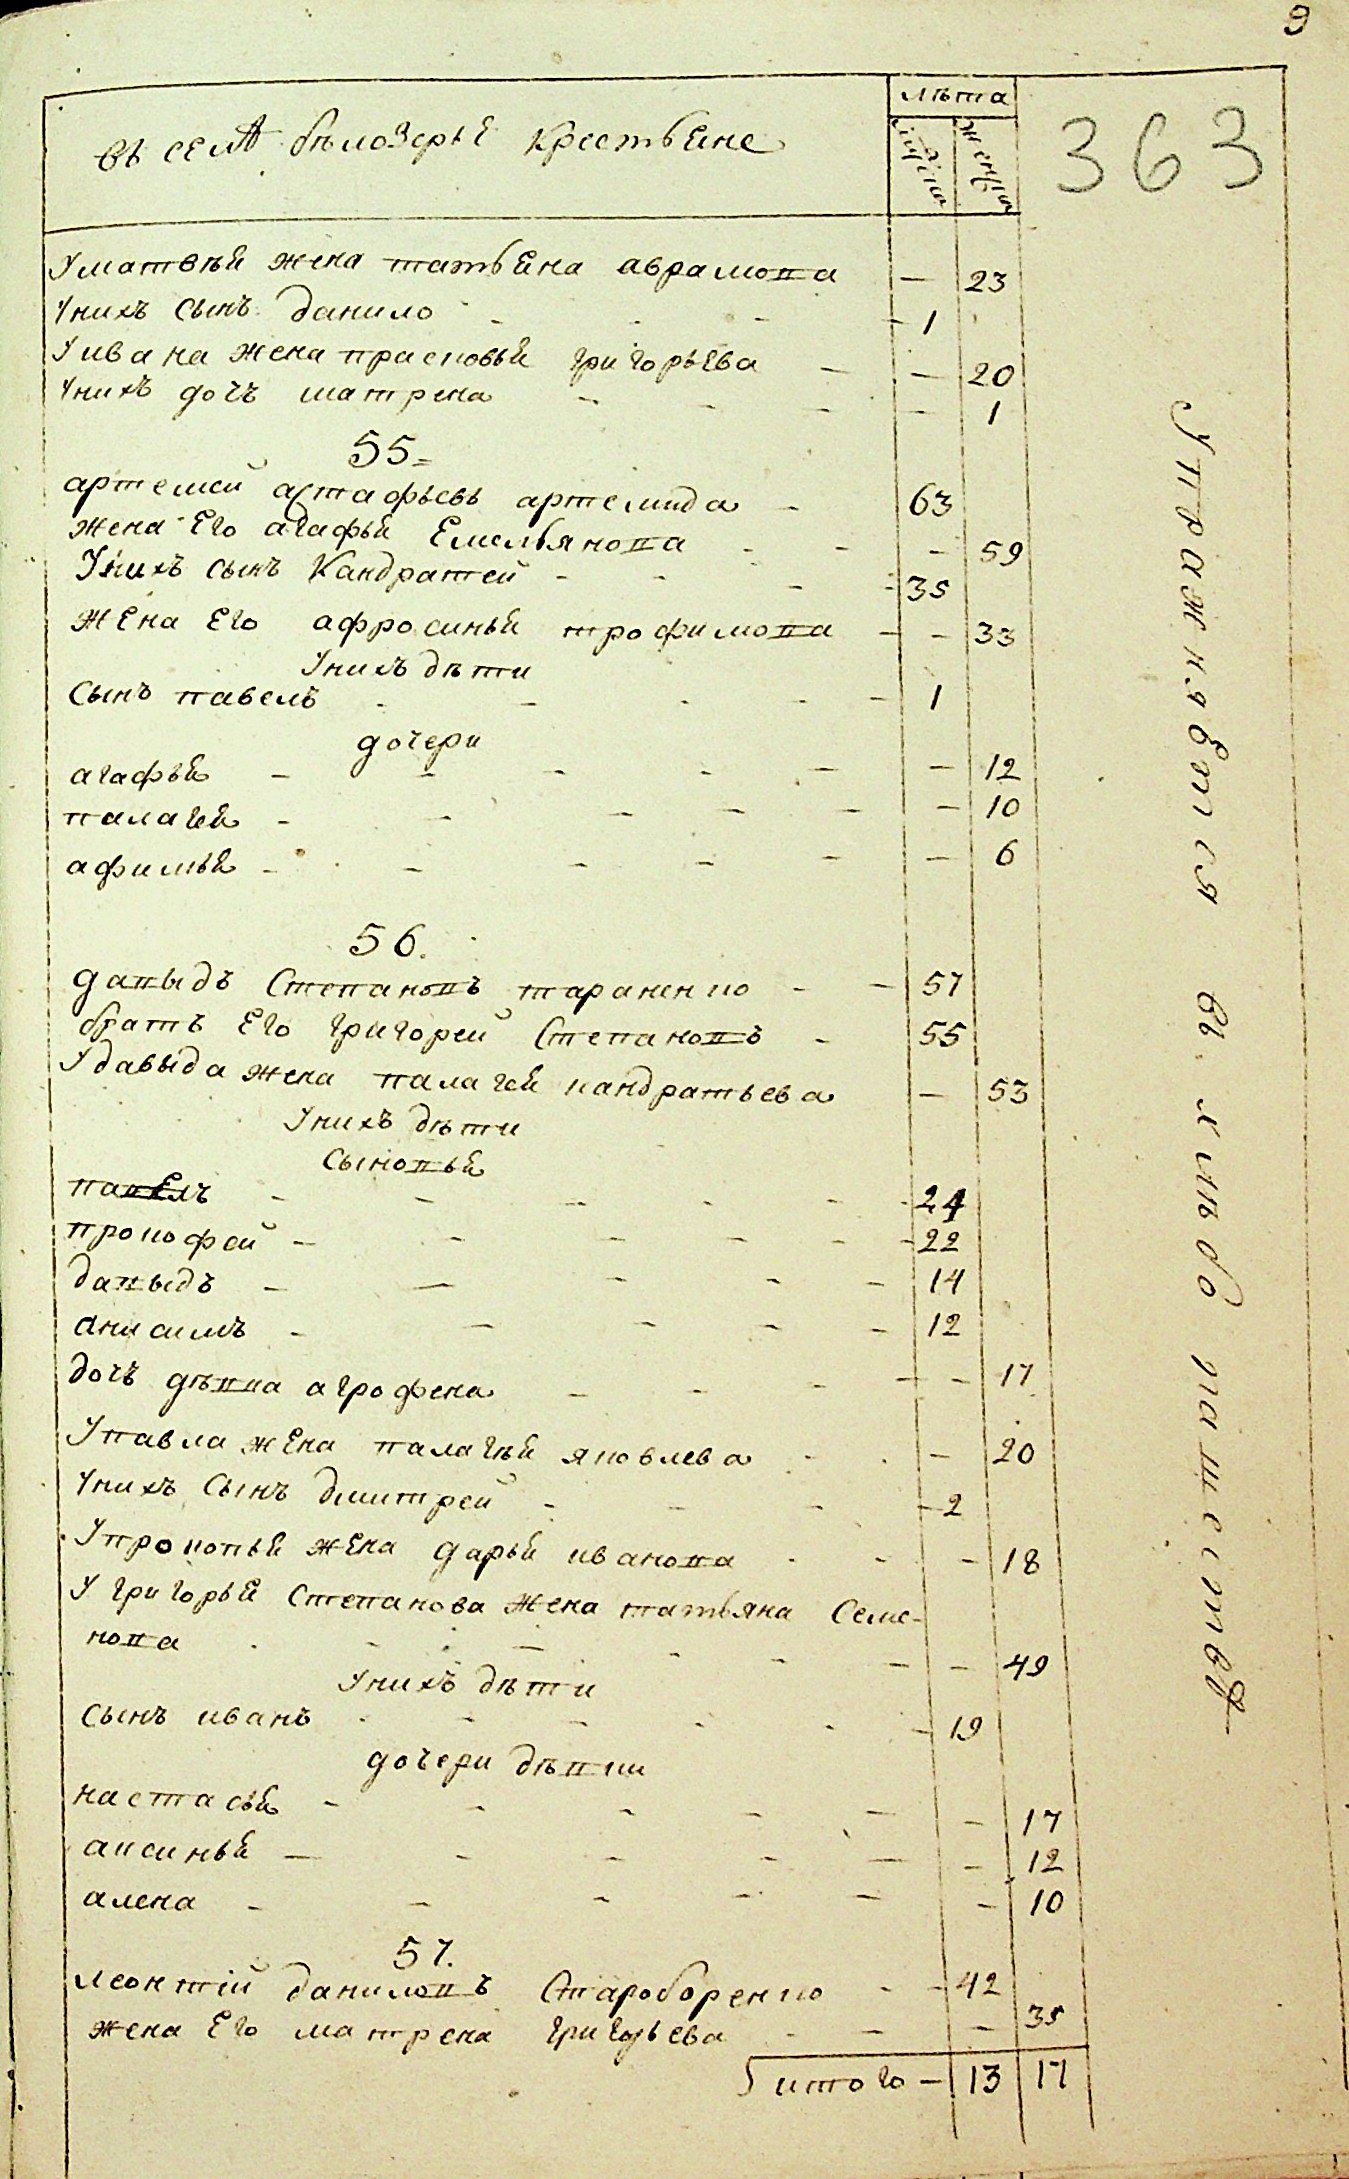 9
363
въ селѣ бѣлозерье крестьяне
лѣта
У матвѣя жена татьяна аврамова — 23
У нихъ сынъ данило - 1
У ивана жена прасковья григорьева — 20
У нихъ дочь матрена - 1
55
артемей астафьевъ артемида - 63
жена его агафья Емельянова - 59
У нихъ сынъ Кандратей - 35
жена его афросинья трофимова - 33
У нихъ дѣти
сынъ павелъ - 1
дочери
агафья - 12
палагея - 10
афимья - 6
56.
давыдъ Степановъ тараненко - 57
братъ его григорей Степановъ - 55
У давыда жена палагея кандратьева — 53
У нихъ дѣти
сыновья
павелъ - 24
прокофей - 22
давыдъ - 14
анисимъ - 12
дочь дѣвка агрофена - 17
У павла жена палагѣя яковлева - 20
У нихъ сынъ дмитрей - 2
У прокопья жена дарья иванова - 18
У григорья Степанова жена татьяна Семе-
нова - 49
У нихъ дѣти
сынъ иванъ - 19
дочери дѣвки
настасья - 17
аксинья - 12
алена - 10
57.
леонтій даниловъ Староборенко - 42
жена его матрена григорьева - 35
итого — 13 17
Упражняется въ хлѣбопашествѣ